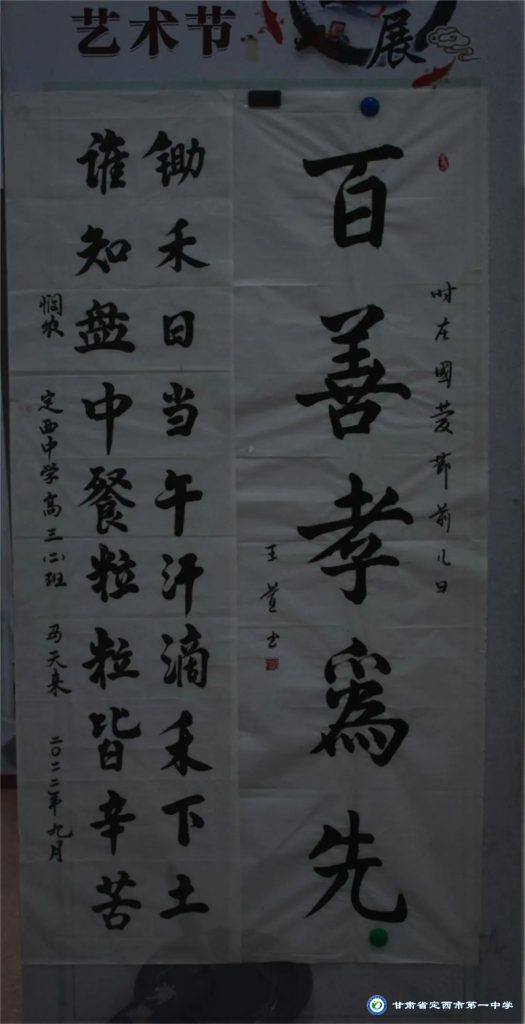 艺术节
展
百善孝為先
时在國慶節前几日
王萱书
锄禾日当午汗滴禾下土
谁知盘中餐粒粒皆辛苦
悯农 定西中学高三(二)班 马天来 二〇二二年九月
甘肃省定西市第一中学